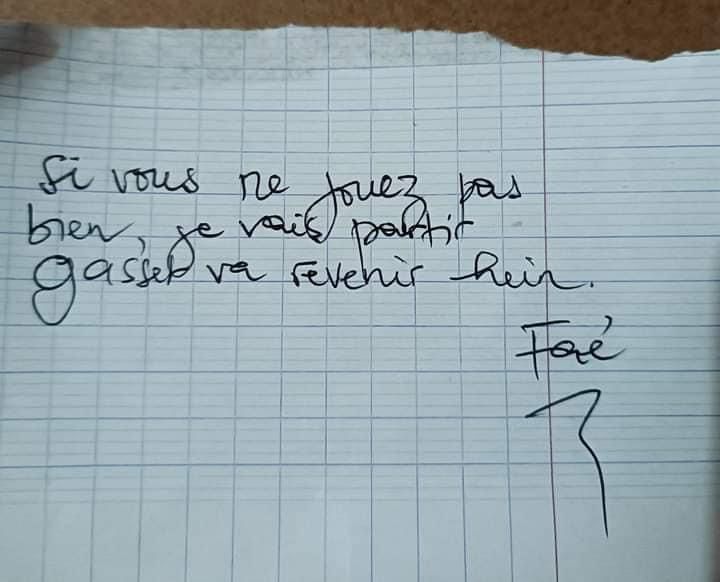 Si vous ne jouez pas
bien, je vais partir
gasset va revenir hein.
Faé